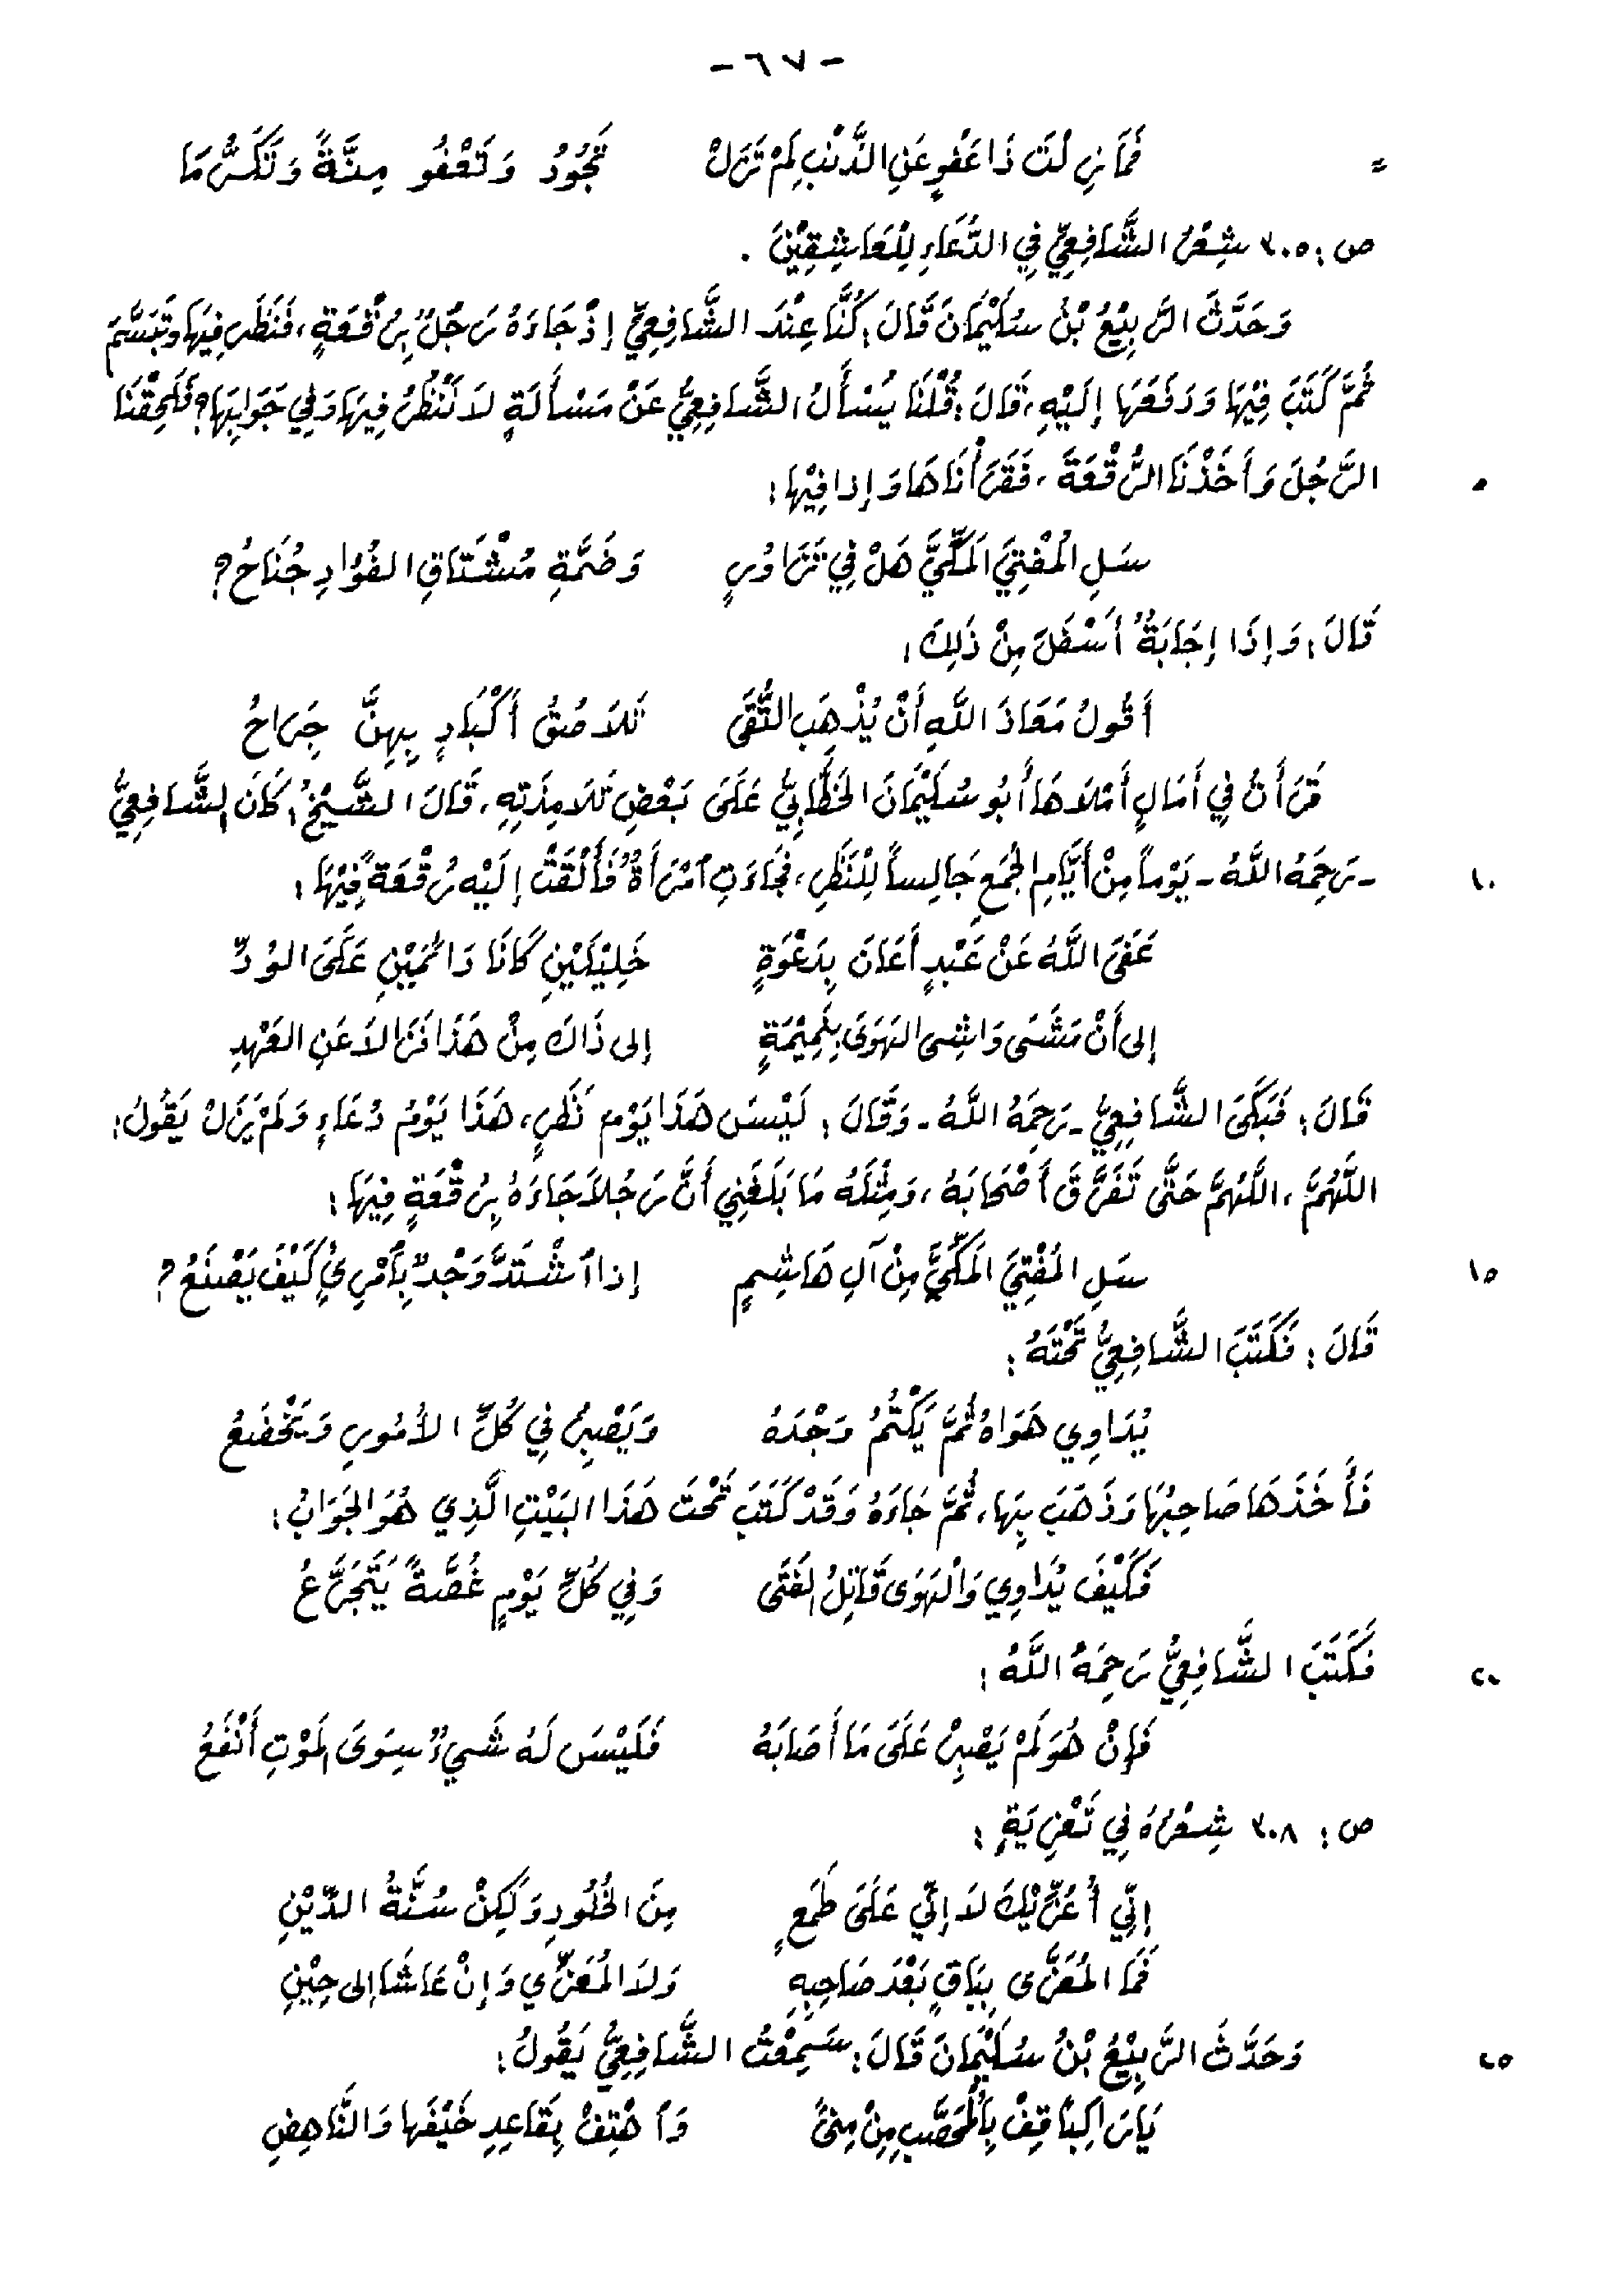 -٦٧-
= فَمَا زِلْتَ ذَا عَفْوٍ عَنِ الذَّنْبِ لَمْ تَزَلْ تَجُودُ وَتَعْفُو مِنَّةً وَتَكَرُّمَا
ص: ٣٠٥ شِعْرُ الشَّافِعِيِّ فِي الدُّعَاءِ لِلْعَاشِقِيْنَ .
وَحَدَّثَ الرَّبِيْعُ بْنُ سُلَيْمَانَ قَالَ: كُنَّا عِنْدَ الشَّافِعِيِّ إِذْ جَاءَهُ رَجُلٌ بِرُقْعَةٍ، فَنَظَرَ فِيْهَا وَتَبَسَّمَ
ثُمَّ كَتَبَ فِيْهَا وَدَفَعَهَا إِلَيْهِ، قَالَ: قُلْنَا يُسْأَلُ الشَّافِعِيُّ عَنْ مَسْأَلَةٍ لاَ نَنْظُرُ فِيْهَا وَفِي جَوَابِهَا؟ فَلَحِقْنَا
٥ الرَّجُلَ وَأَخَذْنَا الرُّقْعَةَ، فَقَرَأْنَاهَا وَإِذا فِيْهَا:
سَلِ الْمُفْتِيَ الْمَكِّيَّ هَلْ فِي تَزَاوُرٍ وَضَمَّةِ مُشْتَاقِ الفُؤَادِ جُنَاحُ؟
قَالَ: وَإِذَا إِجَابَةٌ أَسْفَلَ مِنْ ذَلِكَ:
أَقُولُ مَعَاذَ اللَّهِ أَنْ يُذْهِبَ التُّقَى تَلاَصُقُ أَكْبَادٍ بِهِنَّ جِرَاحُ
قَرَأْتُ فِي أَمَالٍ أَمْلاَهَا أَبُو سُلَيْمَانَ الخَطَّابِيُّ عَلَى بَعْضِ تَلاَمِذَتِهِ، قَالَ الشَّيْخُ: كَانَ الشَّافِعِيُّ
١٠ -رَحِمَهُ اللَّهُ- يَوْماً مِنْ أَيَّامِ الجُمَعِ جَالِساً لِلْنَظَرِ، فَجَاءَتِ ٱمْرَأَةٌ فَأَلْقَتْ إِلَيْه رُقْعَةً فِيْهَا:
عَفَى اللَّهُ عَنْ عَبْدٍ أَعَانَ بِدَعْوَةٍ خَلِيْلَيْنِ كَانَا دَائمَيْنِ عَلَى الوُدِّ
إلى أَنْ مَشَى وَاشِى الهَوَى بِنَمِيْمَةٍ إلى ذَاكَ مِنْ هَذَا فَزَالاَ عَنِ العَهْدِ
قَالَ: فَبَكَى الشَّافِعِيُّ -رَحِمَهُ اللَّهُ- وَقَالَ: لَيْسَ هَذَا يَوْم نَظَرٍ، هَذَا يَوْمُ دُعَاءٍ وَلَمْ يَزَلْ يَقُولُ:
اللَّهُمَّ، اللَّهُمَّ حَتَّى تَفَرَّقَ أَصْحَابَهُ، وَمِثْلَهُ مَا بَلَغَنِي أَنَّ رَجُلاً جَاءَهُ بِرُقْعَةٍ فِيْهَا:
١٥ سَلِ المُفْتِيَ المَكِّيَّ مِنْ آلِ هَاشِمٍ إذا ٱشْتَدَّ وَجْدٌ بِٱمْرِئٍ كَيْفَ يَصْنَعُ؟
قَالَ: فَكَتَبَ الشَّافِعِيُّ تَحْتَهُ:
يُدَاوِي هَوَاهُ ثُمَّ يَكْتُمُ وَجْدَهُ وَيَصْبِرُ فِي كُلِّ الأُمُورِ وَيَخْضَعُ
فَأَخَذَهَا صَاحِبُهَا وَذَهَبَ بِهَا، ثُمَّ جَاءَهُ وَقَدْ كَتَبَ تَحْتَ هَذَا البَيْتِ الَّذِي هُوَ الجَوَابُ:
فَكَيْفَ يُدَاوِي وَالْهَوَى قَاتِلُ الفَتَى وَفِي كُلِّ يَوْمٍ غُصَّةً يَتَجَرَّعُ
٢٠ فَكَتَبَ الشَّافِعِيُّ رَحِمَهُ اللَّهُ:
فَإِنْ هُوَ لَمْ يَصْبِرْ عَلَى مَا أَصَابَهُ فَلَيْسَ لَهُ شَيءٌ سِوَى المَوْتِ أَنْفَعُ
ص: ٣٠٨ شِعْرُهُ فِي تَعْزِيَةٍ:
إِنِّي أُعَزِّيْكَ لاَ إنِّي عَلَى طَمَعٍ مِنَ الخُلُودِ وَلَكِنْ سُنَّةُ الدِّيْنِ
فَمَا المُعَزَّى بِبَاقٍ بَعْدَ صَاحِبِهِ وَلاَ المُعَزِّي وَإِنْ عَاشَا إلى حِيْنِ
٢٥ وَحَدَّثَ الرَّبِيْعُ بْنُ سُلَيْمَانَ قَالَ: سَمِعْتُ الشَّافِعِيَّ يَقُولُ:
يَا رَاكِباً قِفْ بِالْمُحَصَّبِ مِنْ مِنىً وَٱهْتِفْ بِقَاعِدِ خَيْفَها وَالنَّاهِضِ